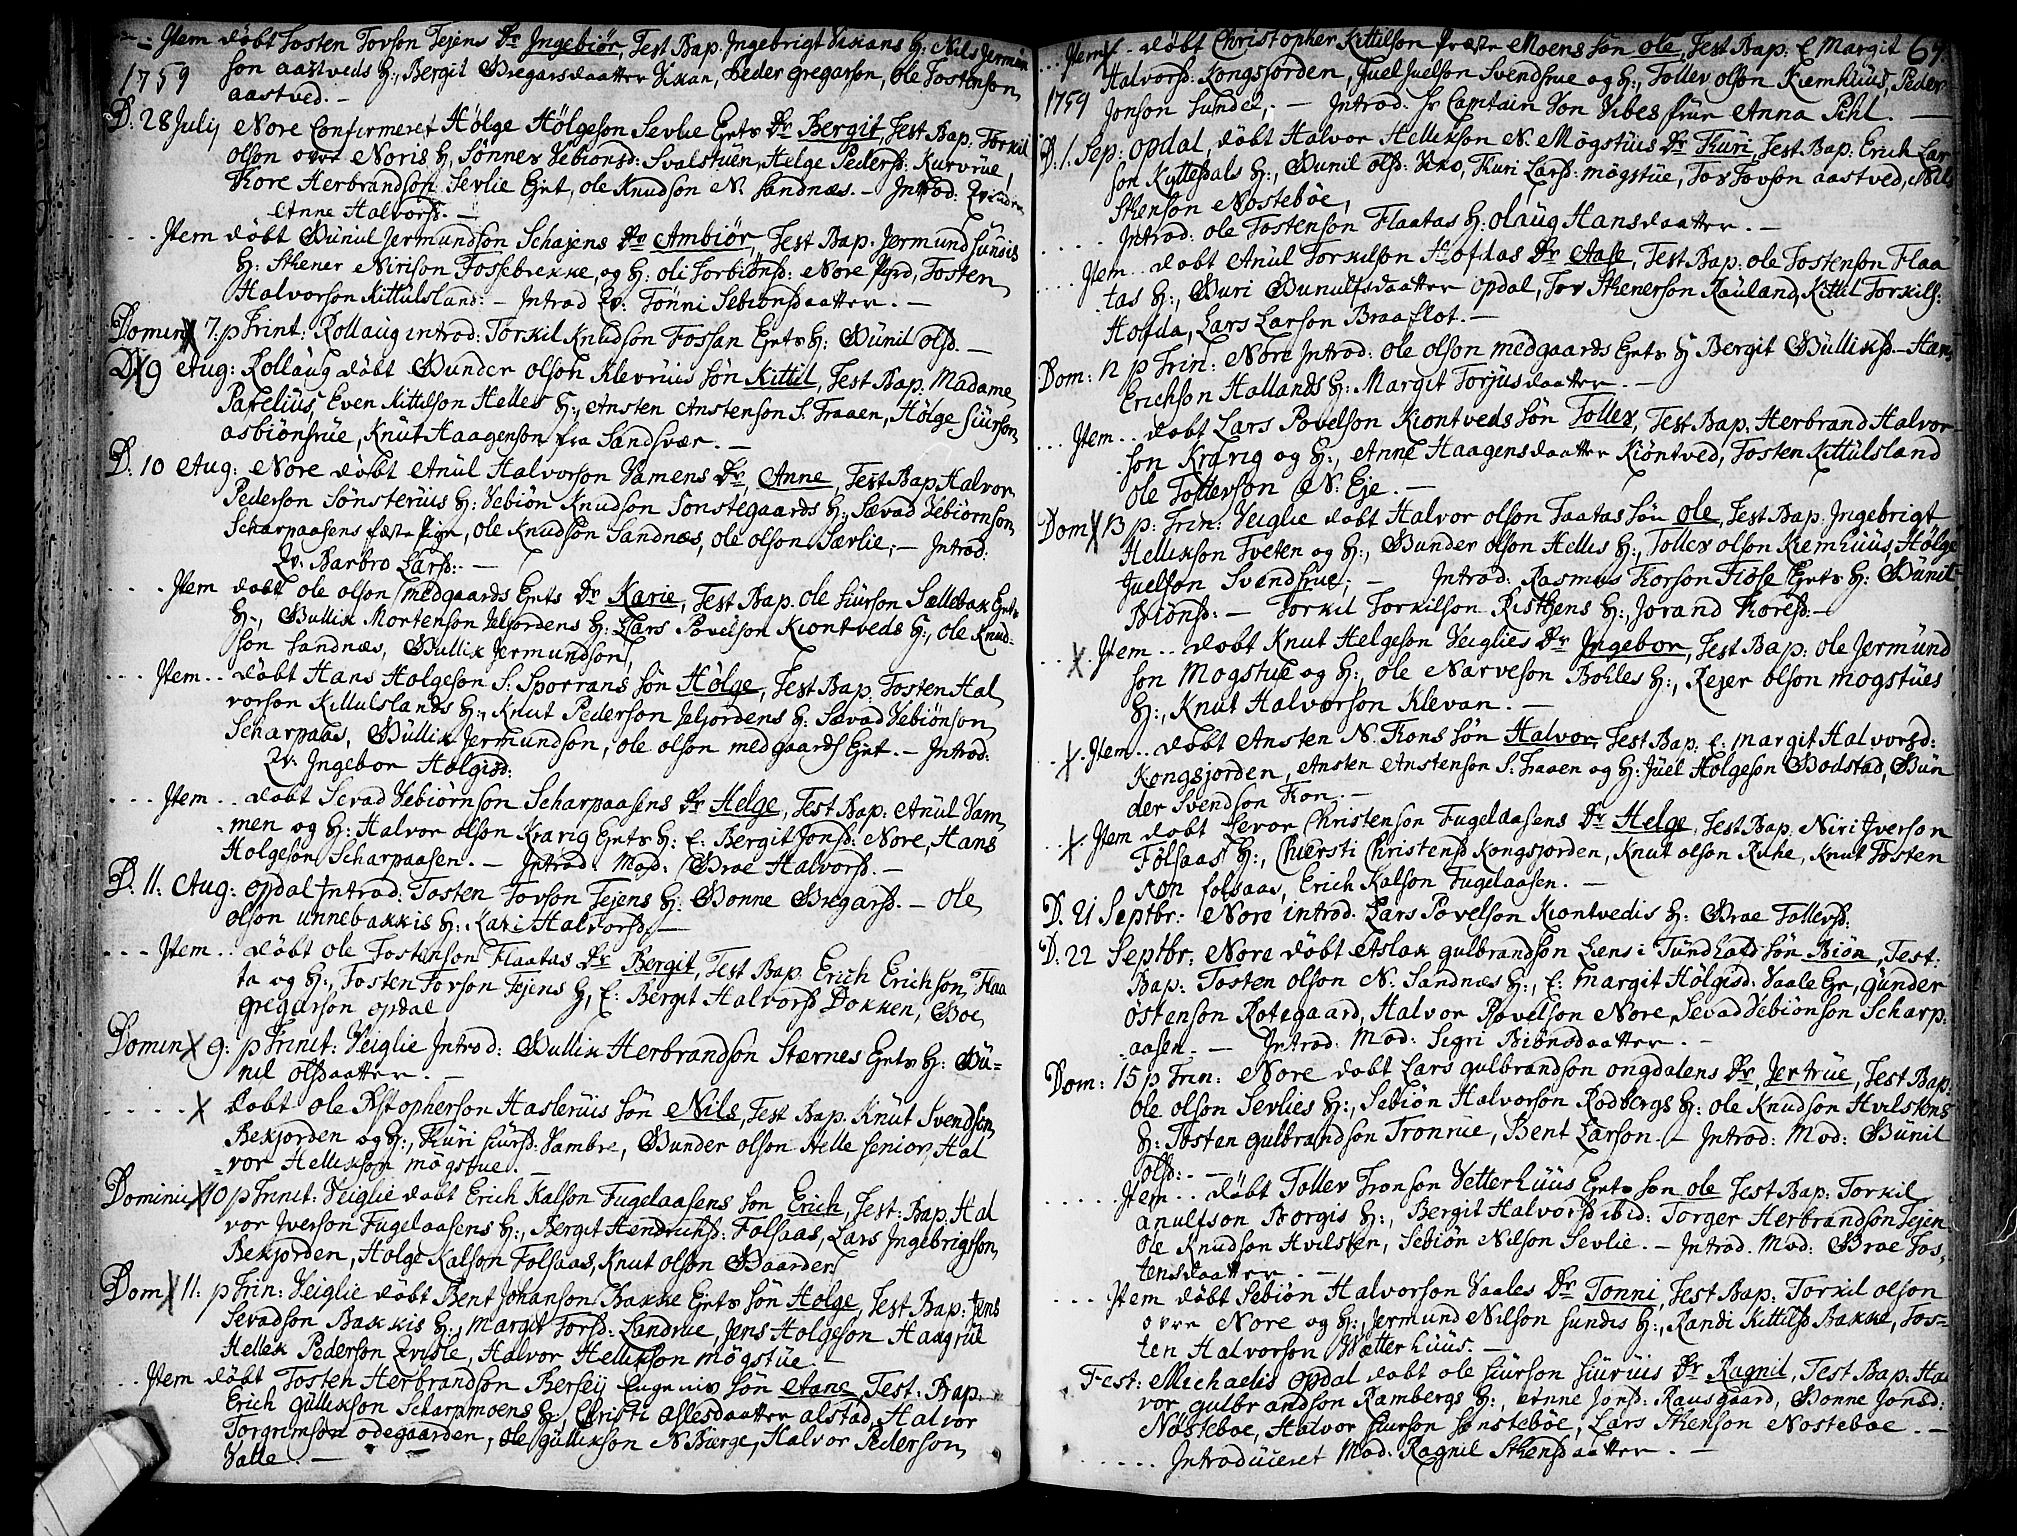 Item døbt Tosten Tovson Tejens Dr Ingebiør, Test Bap: Ingebrigt Vikans H: Nils Jermun
1759
son aastveds H:, Bergit Gregarsdaatter Vikan, Peder gregarson, Ole Tostenson
aastved. -
D: 28 Julij Nore Confirmeret Hölge Hölgeson Sevlie Ejets Dr Bergit, Test Bap: Torkil
olson øvre Noris H, Sönnev Vebionsd: Svalstuen, Helge Peders: Kurvrue,
Tore Herbrandson Sevlie Ejet, ole Knudson N. Sandnæs. - Introd: Qvinden
Anne Halvorsd. -
Item døbt Gunul Jermundson Schajens Dr Ambiør, Test Bap: Jermund Sundis
H: Sthener Nirison Fossebrekke, og H: oli Torbiønsd: Nore Pyrd, Tosten
Halvorson Kittulsland: - Introd Qv: Tönni Sebionsdaatter. -
Domin 7. p Trinit: Rollaug introd: Torkil Knudson Fossan Ejets H: Gunil olsd. -
D: 9 Aug: Rollaug døbt Gunder olson Klevruis sön Kittil, Test Bap. Madame
Parelius, Even Kittilson Helles H:, Ansten Anstenson S. Traaen, Hölge Siurson
asbiönsrue, Knut Haagenson fra Sandsvær. -
D: 10 Aug: Nore døbt Anul Halvorson Vamens Dr Anne, Test Bap. Halvor
Pederson Sönsteruis H: Vebion Knudson Sonstegaards H:, Sævad Vebiornson
Scharpaasens fæste Pige, ole Knudson Sandnæs, ole olson Særlie; - Introd:
Qv. Barbro Larsd: -
Item døbt ole olson medgaards Ejets Dr Karie, Test Bap. ole Siurson Sællebak Ejets
H:, Gullik Mortenson Jeljordens H: Lars Povelson Kiontveds H:, ole Knud-
son Sandnæs, Gullik Jermundson,
Item.. døbt Hans Holgeson S: Sporrans sön Hölge, Test Bap. Tosten Hal
vorson Kittulslands H:, Knut Pederson Jeljordens H: Sævad Vebiönson
Scharpaas, Gullik Jermundson, ole olson medgaards Ejet. - Introd:
Qv: Ingebor Holgisd:
Item.. døbt Sevad Vebiørnson Scharpaasens Dr Helge, Test Bap. Anul Vam
men og H: Halvor olson Kravig Ejets H: E: Bergit Jonsd: Nore, Hans
Holgeson Scharpaasen. - Introd: Mod: Groe Halvorsd. -
D: 11: Aug: opdal Introd: Tosten Tovson Tejens H: Gonne Gregarsd. - Ole
olson unnebakkis H: Kari Halvorsd. -
Item.. døbt ole Tostenson Flaatas Dr Bergit, Test Bap. Erich Erichson Flaa
ta og H:, Tosten Tovson Tejens H, E: Bergit Halvorsd Dokken, Boe
gregarson opdal
Domin 9: p Trinit: Veiglie Introd: Gullik Herbrandson Stærnes Ejets H: Gu-
nil olsdaatter. -
døbt ole Kstopherson Hasleruis sön Nils, Test Bap. Knut Svendson
Bekjorden og H:, Kuri Siursd. Vambre, Gunder olson Helle senior, Hal
vor Hellikson mögstue. -
Domini 10 p Trinit: Veiglie døbt Erich Kalson Fugelaasens sön Erich, Test: Bap. Hal
vor Jverson Fugelaasens H:, Bergit Hendrichsd: Folsaas, Lars Ingebrigtson
Bekjorden, Holge Kalson Folsaas, Knut olson Gaarder
Dom 11: p Trin: Veiglie døbt Bent Johanson Bakke Ejets sön Hölge, Test Bap: Jens
Sevadson Bakkis H:, Margit Torsd: Landrue, Jens Holgeson Haagrue
Hellek Pederson Qvisle, Halvor Hellikson mögstue. -
Item døbt Tosten Herbrandson Bersejj Eugeniv sön Aane, Test: Bap.
Erich Gullikson Scharpmoens H, Christi Aslesdaatter alstad, Halvor
Torgrimson odegaarden, Ole gullikson N Bierge, Halvor Pederson
Valle. -
Item døbt Christopher Kittilson Præste Moens sön ole, Test Bap: E Margit 67.
1759
Halvorsd: Kongsjorden, Juel Juelson Svendsrue og H:, Tollev olson Kiemhuus, Peder
Jonson Sunde; - Introd: Hr Captain Von Vibes frue Anna Pihl. -
D: 1 Sep: opdal, døbt Halvor Hellikson N. Mögstuis Dr Kuri, Test Bap: Erich Lar
son Kyttesdals H:, Gunil olsd: Kro, Kuri Larsd: mögstue, Tov Tovson aastved, Nils
Sthenson Nosteböe,
Introd: ole Tostenson Flaatas H: olaug Hansdaatter. -
Item.. døbt Anul Torkilson Hofdas Dr Aase, Test Bap: ole Tostenson Flaa
tas H:, Guri Gunulfsdaatter opdal, Tov Sthenerson Rauland, Kittil Torkils:
Hofda, Lars Larson Braaflot. -
Dom: 12 p Trin: Nore Introd: ole olson medgaards Ejets H Bergit Gulliksd - Hans
Erichson Hallands H: Margit Torjusdaatter. -
Item.. døbt Lars Povelson Kiontveds sön Tollev, Test Bap. Herbrand Halvor-
son Kravig og H:, Anne Haagensdaatter Kiöntved, Tosten Kittulsland
Ole Tollevson N. Eje. -
Dom 13 p: Trin: Veiglie døbt Halvor olson Taatas sön ole, Test Bap: Ingebrigt
Hellikson Tveten og H:, Gunder olson Hellis H:, Tollev olson Kiemhuus, Hölge
Juelson Svendsrue; - Introd: Rasmus Korson Fiose Ejets H: Gunil
Biönsd: - Torkil Torkilson Risthens H:, Jorand Koresd. -
Item.. døbt Knut Helgeson Veiglies Dr Ingebor, Test Bap: ole Jermund
son Mogstue og H:, ole Narveson Bohles H:, Rejer olson mogstues
H:, Knut Halvorson Klevan. -
Item.. døbt Ansten N. Kons sön Halvor, Test Bap. E: margit Halvorsd:
Kongsjorden, Ansten Anstenson S. Traaen og H: Juel Holgeson Bodstad, Gun
der Svendson Kon. -
Item døbt Levor Christenson Fugelaasens Dr Helge, Test Bap. Niri Jverson
Fölsaas H:, Chiersti Christensd Kongsjorden, Knut olson Ruhe, Knut Tosten
son folsaas, Erich Kalson Fugelaasen. -
D: 21 Septbr: Nore introd: Lars Povelson Kiontvedis H: Groe Tollevsd:
D: 22 Septbr: Nore døbt Aslak gulbrandson Liens i Tundhofd sön Biön, Test:
Bap: Tosten olson N. Sandnæs H:, E: margit Hölgisd: Vaale Eje, gunder
östenson Rotegaard, Halvor Povelson Nore, Sevad Vebiönson Scharp-
aasen. - Introd: Mod: Sigri Biönsdaatter. -
Dom: 15 p Trin: Nore døbt Lars gulbrandson ongdalens Dr Jertrue, Test Bap.
Ole olson Sevlies H:, Sebiön Halvorson Rodbergs H: ole Knudson Hvilstens
H: Tosten gulbrandson Tronrue, Bent Larson - Introd: Mod: Gunil
olsd: -
Item.. døbt Tollev Tronson Vetterhuus Ejets sön ole Test Bap: Torkil
anulfson Borgis H:, Bergit Halvorsd ibid: Torger Herbrandson Tejen
Ole Knudson Hvilsten, Sebiön Nilson Sevlie. - Introd: Mod: Groe Tos-
tensdaatter. -
Item døbt Sebiön Halvorson Vaales Dr Tonni, Test Bap: Torkil olson
ovre Nore og H:, Jermund Nilson Sundis H:, Randi Kittilsd Bakke, Tos-
ten Halvorson Vætterhuus. -
Fest: Michaelis opdal døbt ole Siurson Siurruis Dr Ragnil, Test Bap: Hal
vor gulbrandson Rambergs H:, Anne Jonsd: Rausgaard, Gonne Jonsd:
Nösteboe, Halvor Siurson Sönsteböe, Lars Sthenson Nosteboe. -
Introduceret Mod: Ragnil Sthensdaatter. -